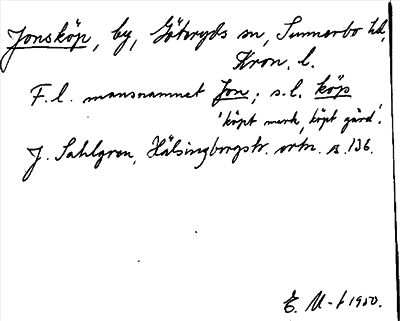 Jonsköp, by, Göteryds sn, Sunnerbo hd,
Kron. l.
F. l. mansnamnet Jon; s. l. köp
'köpt mark, köpt gård'.
J. Sahlgren, Hälsingborgstr. ortn. s. 136.
E. M-t 1950.